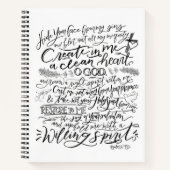 Hide Your face from my sins
blot out all my iniquity
Create in me
a clean heart,
O God
and renew a right
spirit within me
Cast me not away from Your presence
& take not Your Holy Spirit
from me
RESTORE TO ME
the joy of Your
salvation
and uphold me with a
Willing spirit